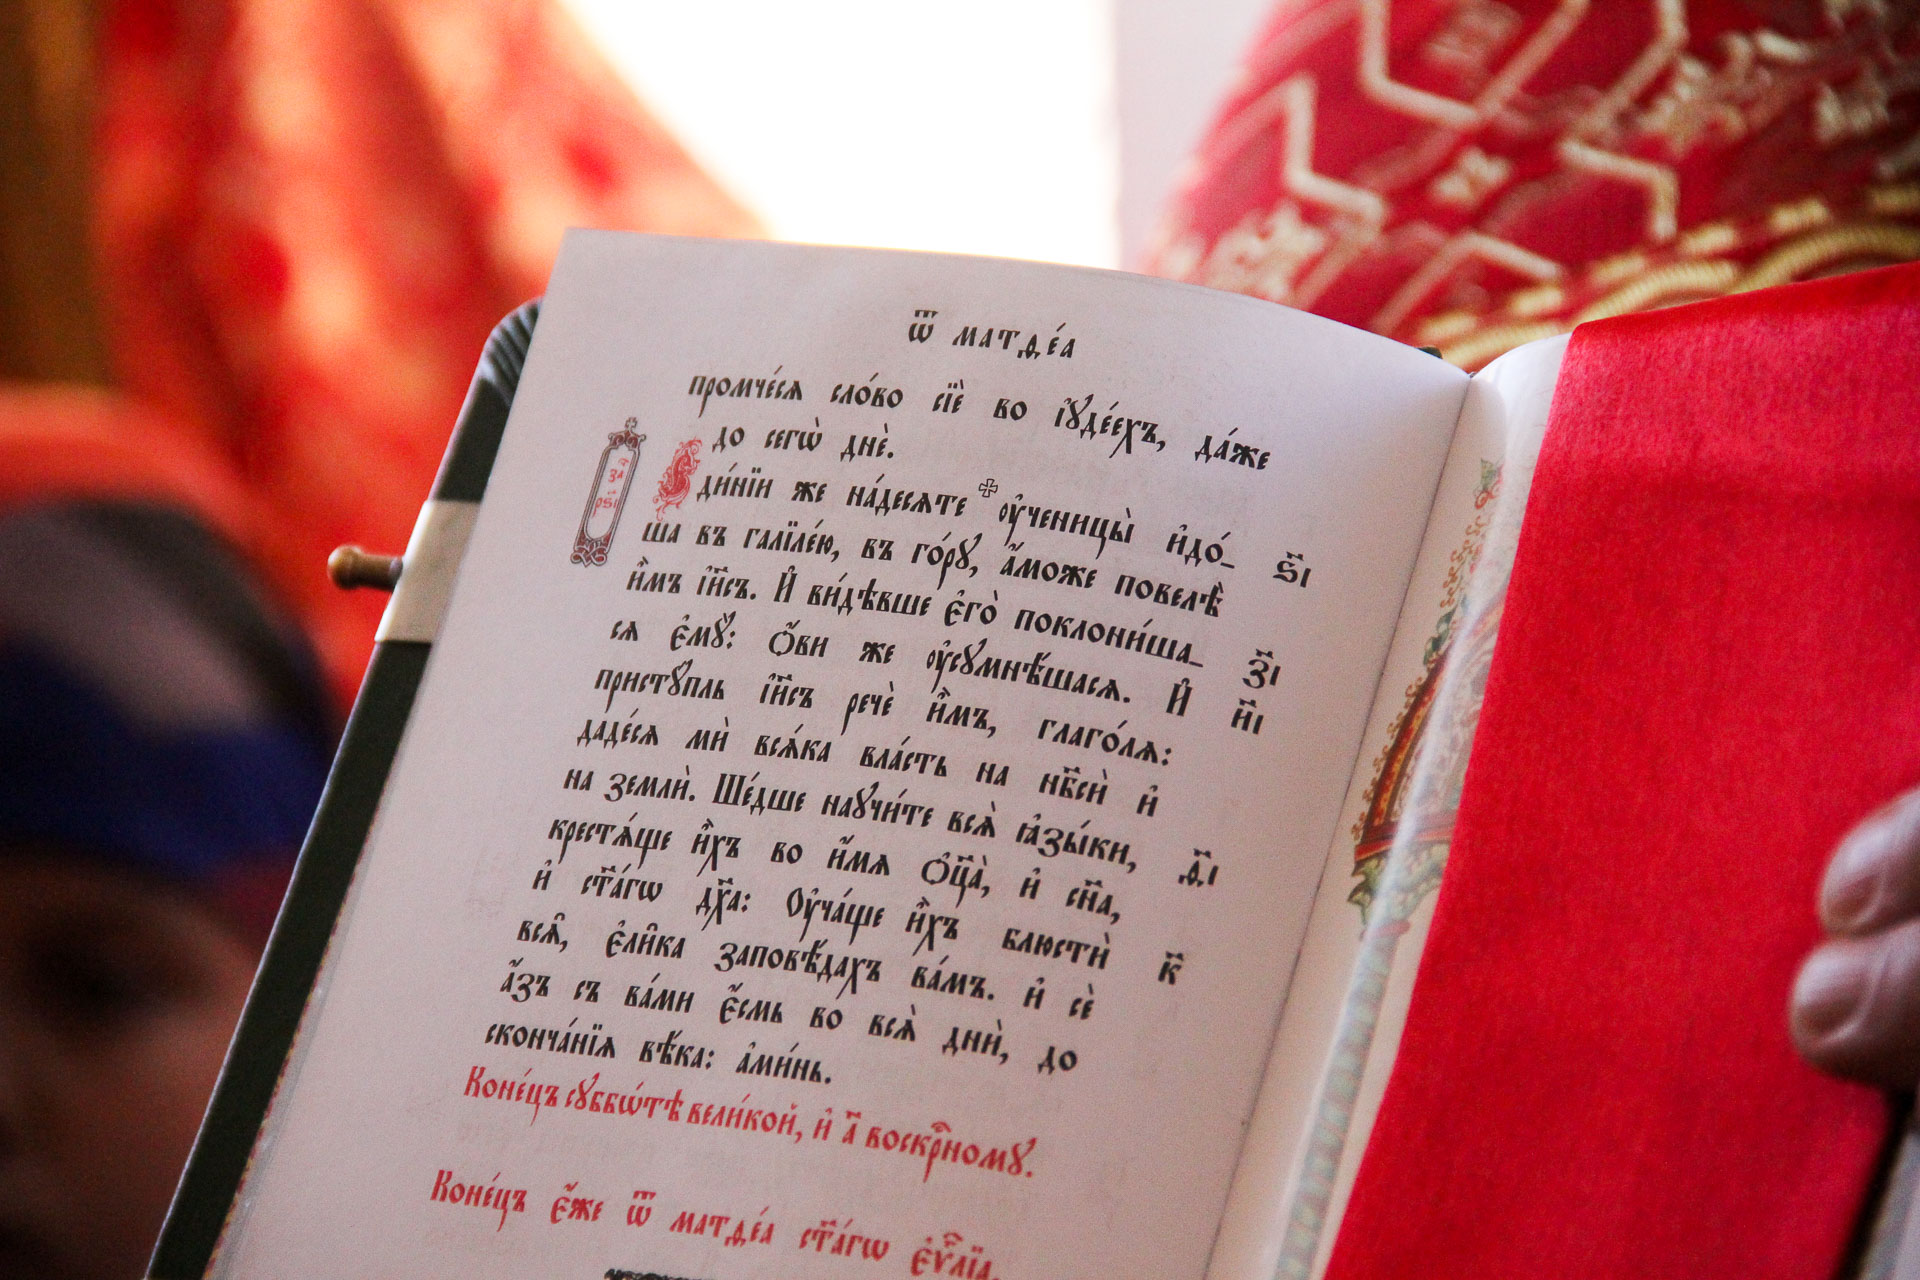 Ѿ МАТѲЕ́А
промче́сѧ сло́во сїѐ во і҆ꙋде́ехъ, да́же
до сегѡ̀ днѐ.
Є҆ди́нїи же на́десѧте ᲂу҆ченицы̀ и҆до́-
ша въ галїле́ю, въ го́рꙋ, а҆́може повелѣ̀
и҆̀мъ і҆и҃съ. И҆ ви́дѣвше є҆го̀ поклони́ша-
сѧ є҆мꙋ̀: Ѻ҆́ви же ᲂу҆сꙋмнѣ́шасѧ. И҆
пристꙋ́пль і҆и҃съ речѐ и҆̀мъ, глаго́лѧ:
даде́сѧ мѝ всѧ́ка вла́сть на нб҃сѝ и҆
на землѝ. Ше́дше наꙋчи́те всѧ̀ ꙗ҆зы́ки,
крестѧ́ще и҆̀хъ во и҆́мѧ ѻ҆ц҃а̀, и҆ сн҃а,
и҆ ст҃а́гѡ дх҃а: Оу҆ча́ще и҆̀хъ блюстѝ
всѧ̑, є҆ли̑ка заповѣ́дахъ ва́мъ. и҆ сѐ
а҆́зъ съ ва́ми є҆́смь во всѧ̀ днѝ, до
сконча́нїѧ вѣ́ка: а҆ми́нь.
Коне́цъ сꙋббѡ́тѣ вели́кой, и҆ а҃ воскрⷭ҇номꙋ.
Коне́цъ є҆́же ѿ матѳе́а ст҃а́гѡ є҆ѵⷢ҇лїа.
за҃
рѕ҃і
ѕ҃і
з҃і
и҃і
ѳ҃і
к҃